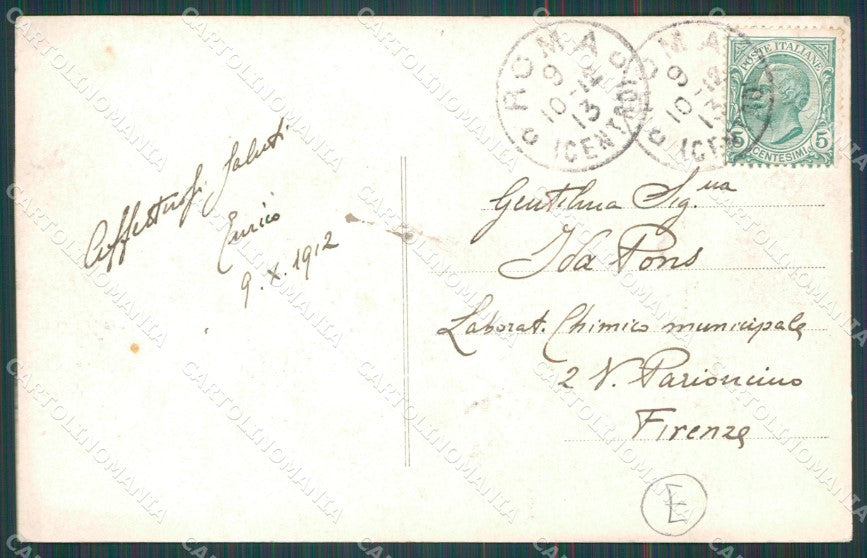 Affettuosi Saluti
Enrico
9.X.1912
ROMA
9
10-12
13
(CENTRO)
ROMA
9
10-12
13
(CEN
POSTE ITALIANE
5 5
CENTESIMI
Gentilma Sig.na
Ida Pons
Laborat. Chimico municipale
2 V. Parioncino
Firenze
E
CARTOLINOMANIA